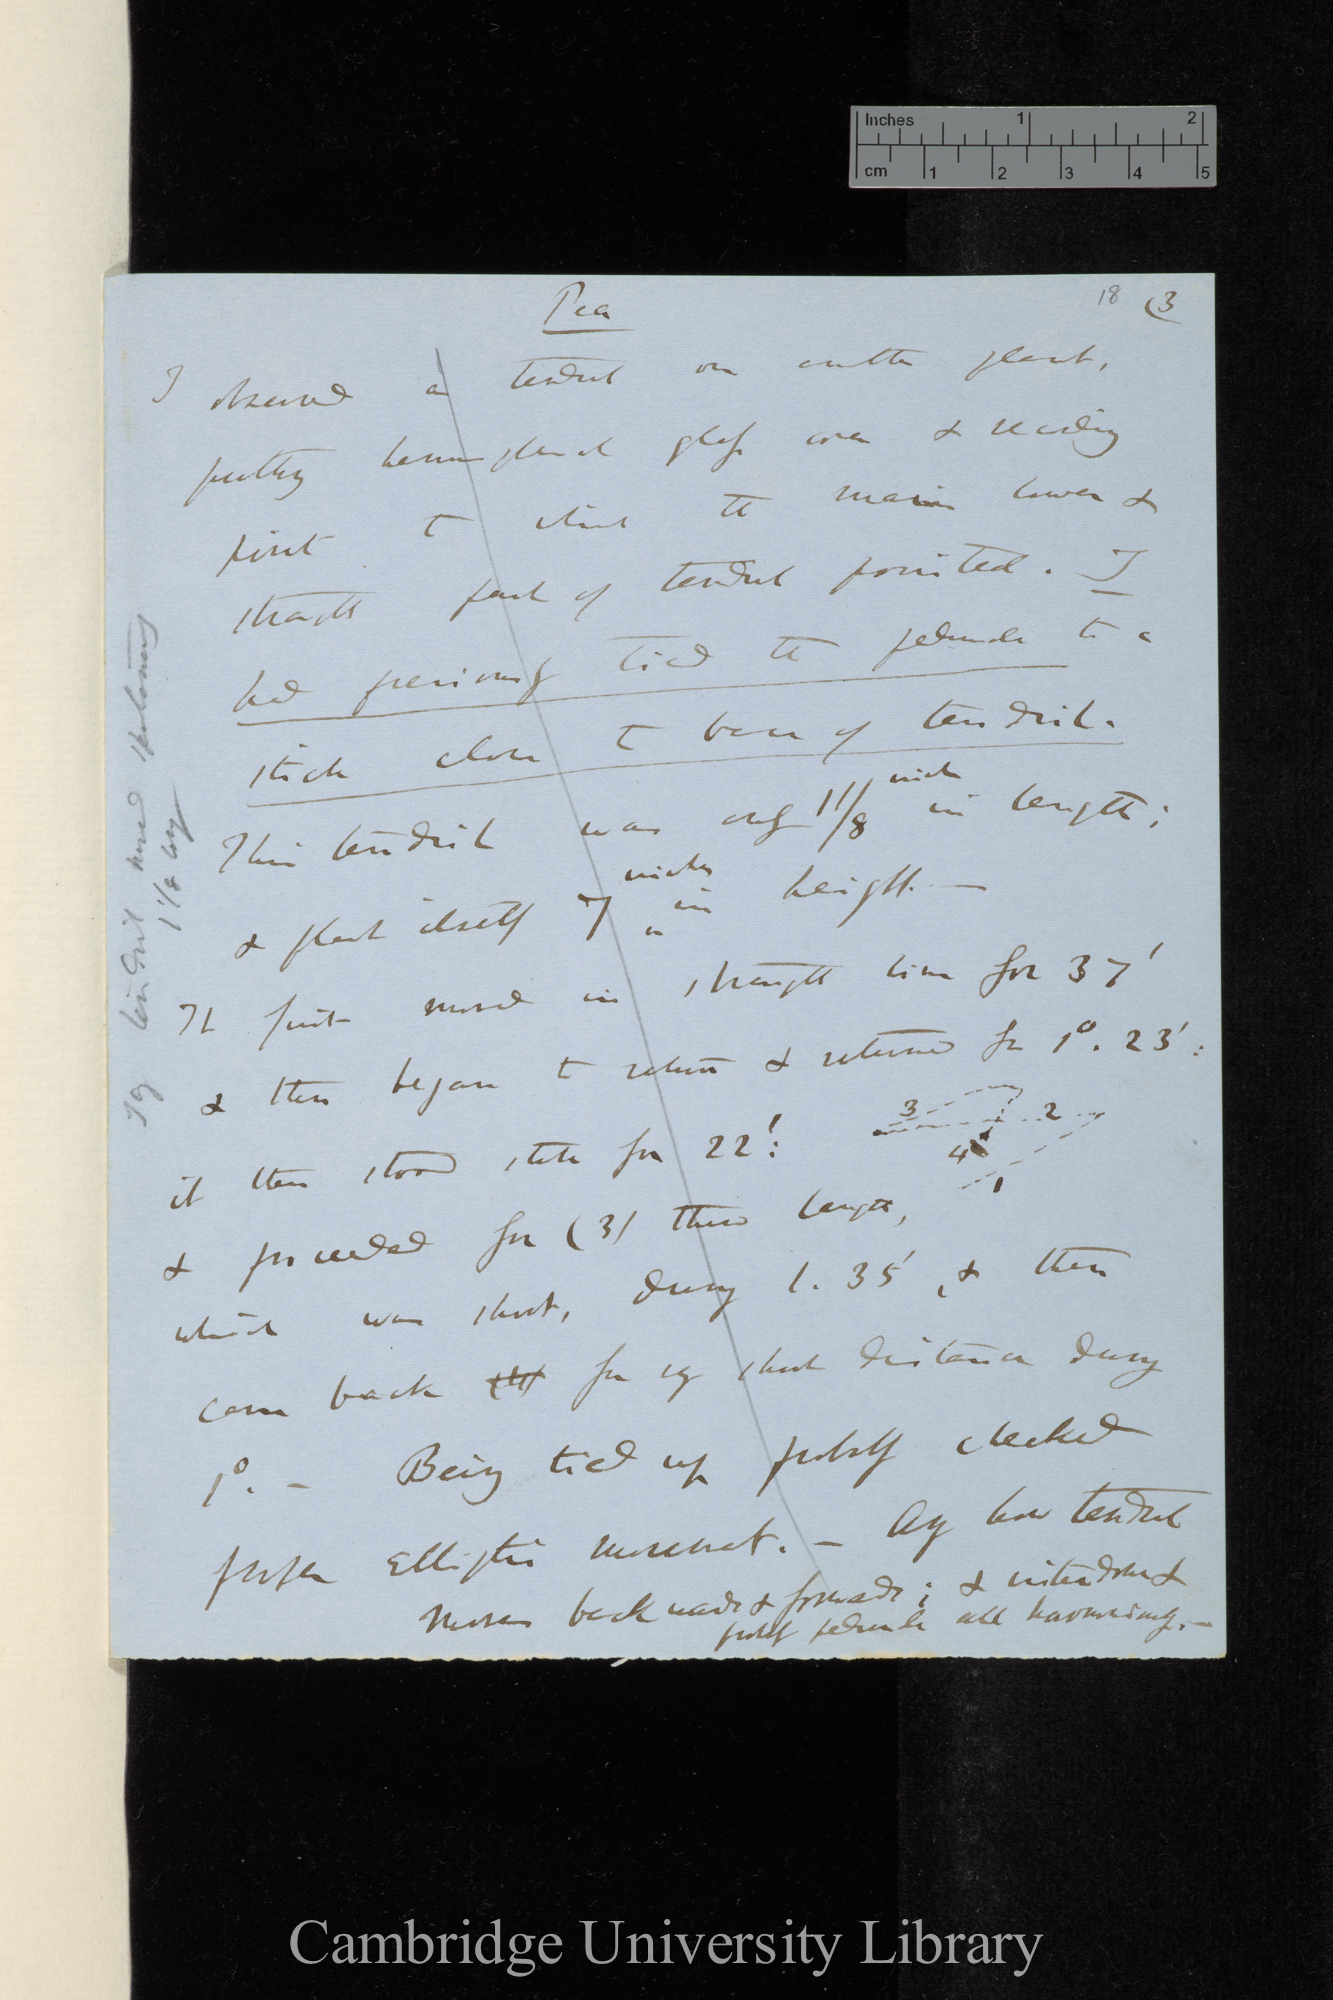 Inches 1 2
cm 1 2 3 4 5
18 (3
Pea
I observed a tendril on another plant,
putting hemispherical glass over & recording
point to which the main lower &
straight part of tendril pointed. I
had previously tied the peduncle to a
stick close to base of tendril.
This tendril was only 1 1/8 inch in length;
& plant itself 7 inches in height. —
It first moved in straight line for 37'
& then began to return & returned for 1°. 23':
it then stood still for 22':
3 2
4
1
& proceeded for (3) three length,
which was short, during 1. 35', & then
came back for short distance during
1°. — Being tied up probably checked
proper Elliptic movement. — Any how tendril
moves backwards & forwards; & internodes &
probably peduncle all harmoniously. —
tendril moved spontaneously
1 1/8 long
Cambridge University Library